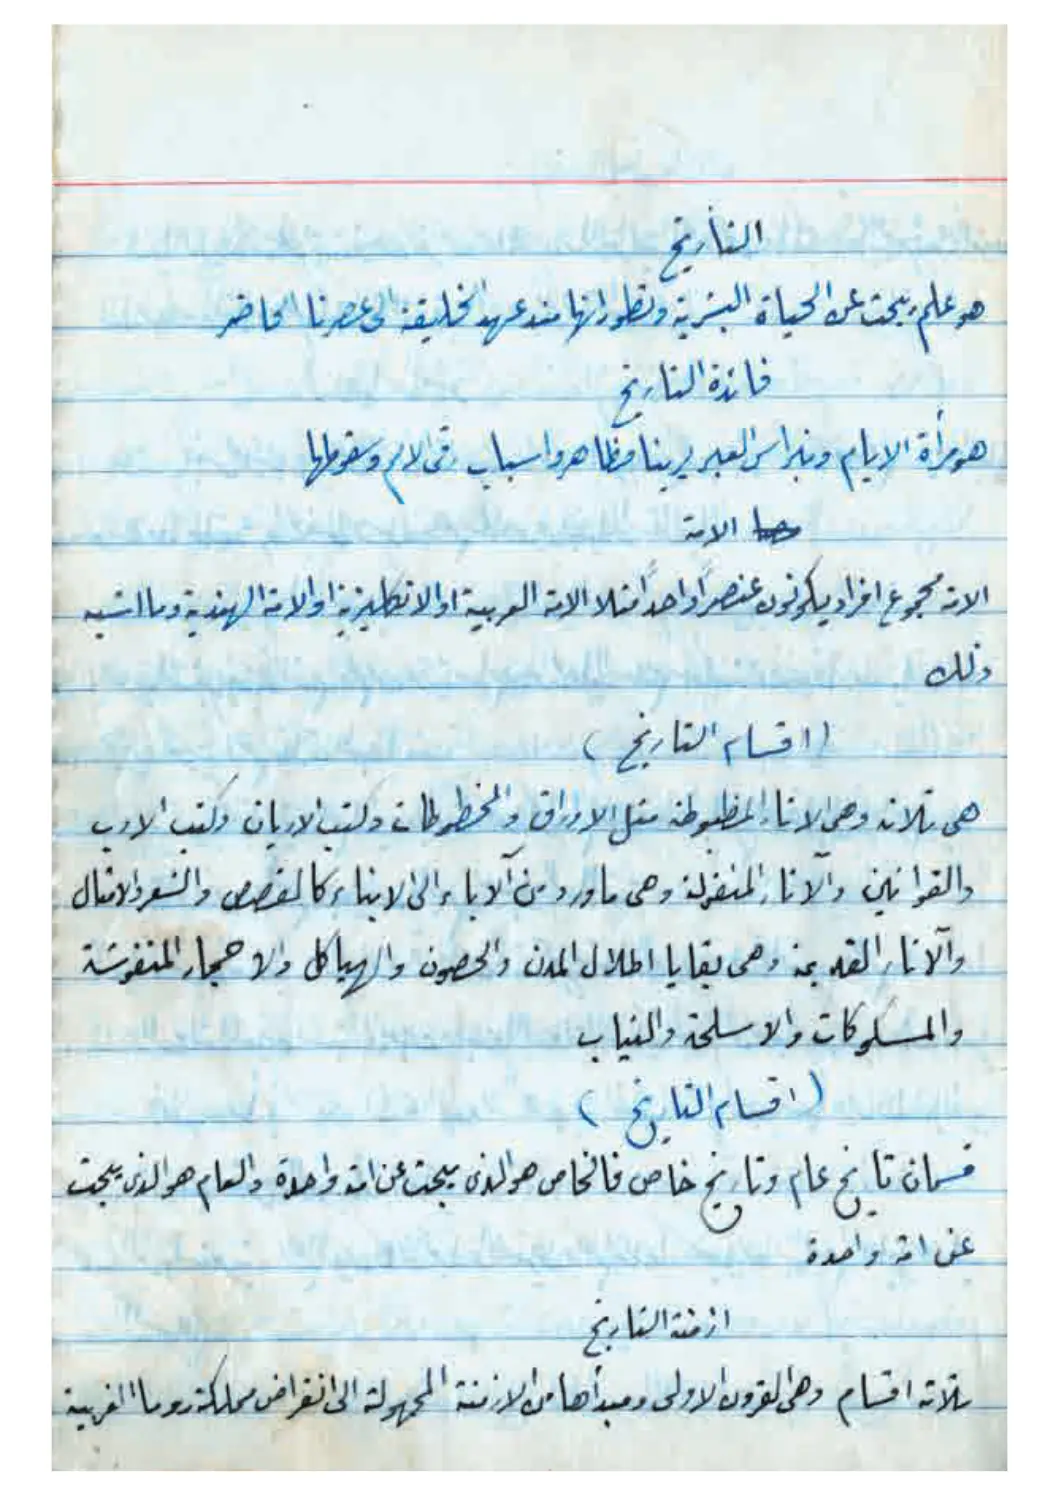 التأريخ
هو علم يبحث عن الحياة البشرية وتطوراتها منذ عهد الخليقة الى عصرنا الحاضر
فائدة التاريخ
هو مرأة الايام ونبراس العبر يرينا مظاهر واسباب رقى الامم وسقوطها
الامة
الامة مجموع افراد يكونون عنصراً واحداً مثلا الامة العربية او الانكليزية او الامة الهندية وما اشبه
ذلك
(اقسام التاريخ)
هى ثلاثة وهى الاثار المظبوطة مثل الاوراق والمخطوطات وكتب الاديان وكتب الادب
والقوانين والآثار المنقولة وهى ما ورد من الآباء الى الابناء كالقصص والشعر والامثال
والآثار القديمة وهى بقايا اطلال المدن والحصون والهياكل والاحجار المنقوشة
والمسكوكات والاسلحة والثياب
(اقسام التاريخ)
قسمان تاريخ عام وتاريخ خاص فالخاص هو الذى يبحث عن امة واحدة والعام هو الذى يبحث
عن امة واحدة
ازمنة التاريخ
ثلاثة اقسام وهى القرون الاولى ومبدأها من الازمنة المجهولة الى انقراض مملكة روما الغربية